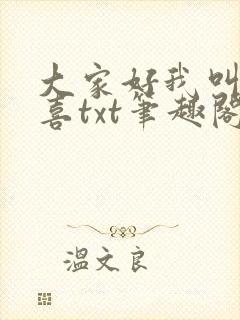 大家好我叫
喜txt笔趣阁
温文良